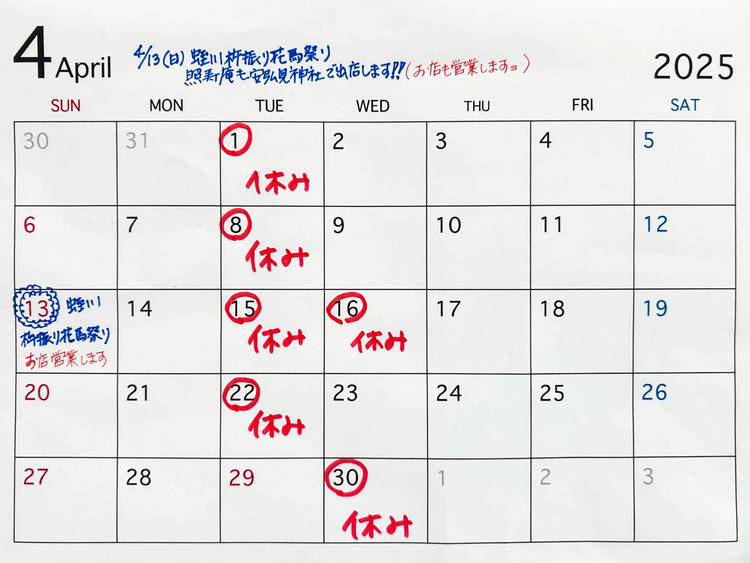 4 April
4/13(日) 蛭川杵振り花馬祭り
照寿庵も安弘見神社で出店します!!(お店も営業します。)
2025
SUN MON TUE WED THU FRI SAT
30 31 1 2 3 4 5
休み
6 7 8 9 10 11 12
休み
13 蛭川 14 15 16 17 18 19
杵振り花馬祭り 休み 休み
お店営業します
20 21 22 23 24 25 26
休み
27 28 29 30 1 2 3
休み